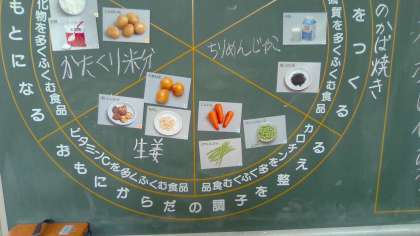 のかば焼き
化物を多くふくむ食品
もとになる
かたくり粉
ちりめんじゃこ
質を多くふくむ食品
をつくる
生姜
ビタミンCを多くふくむ食品
カロチンを多くふくむ食品
おもにからだの調子を整える